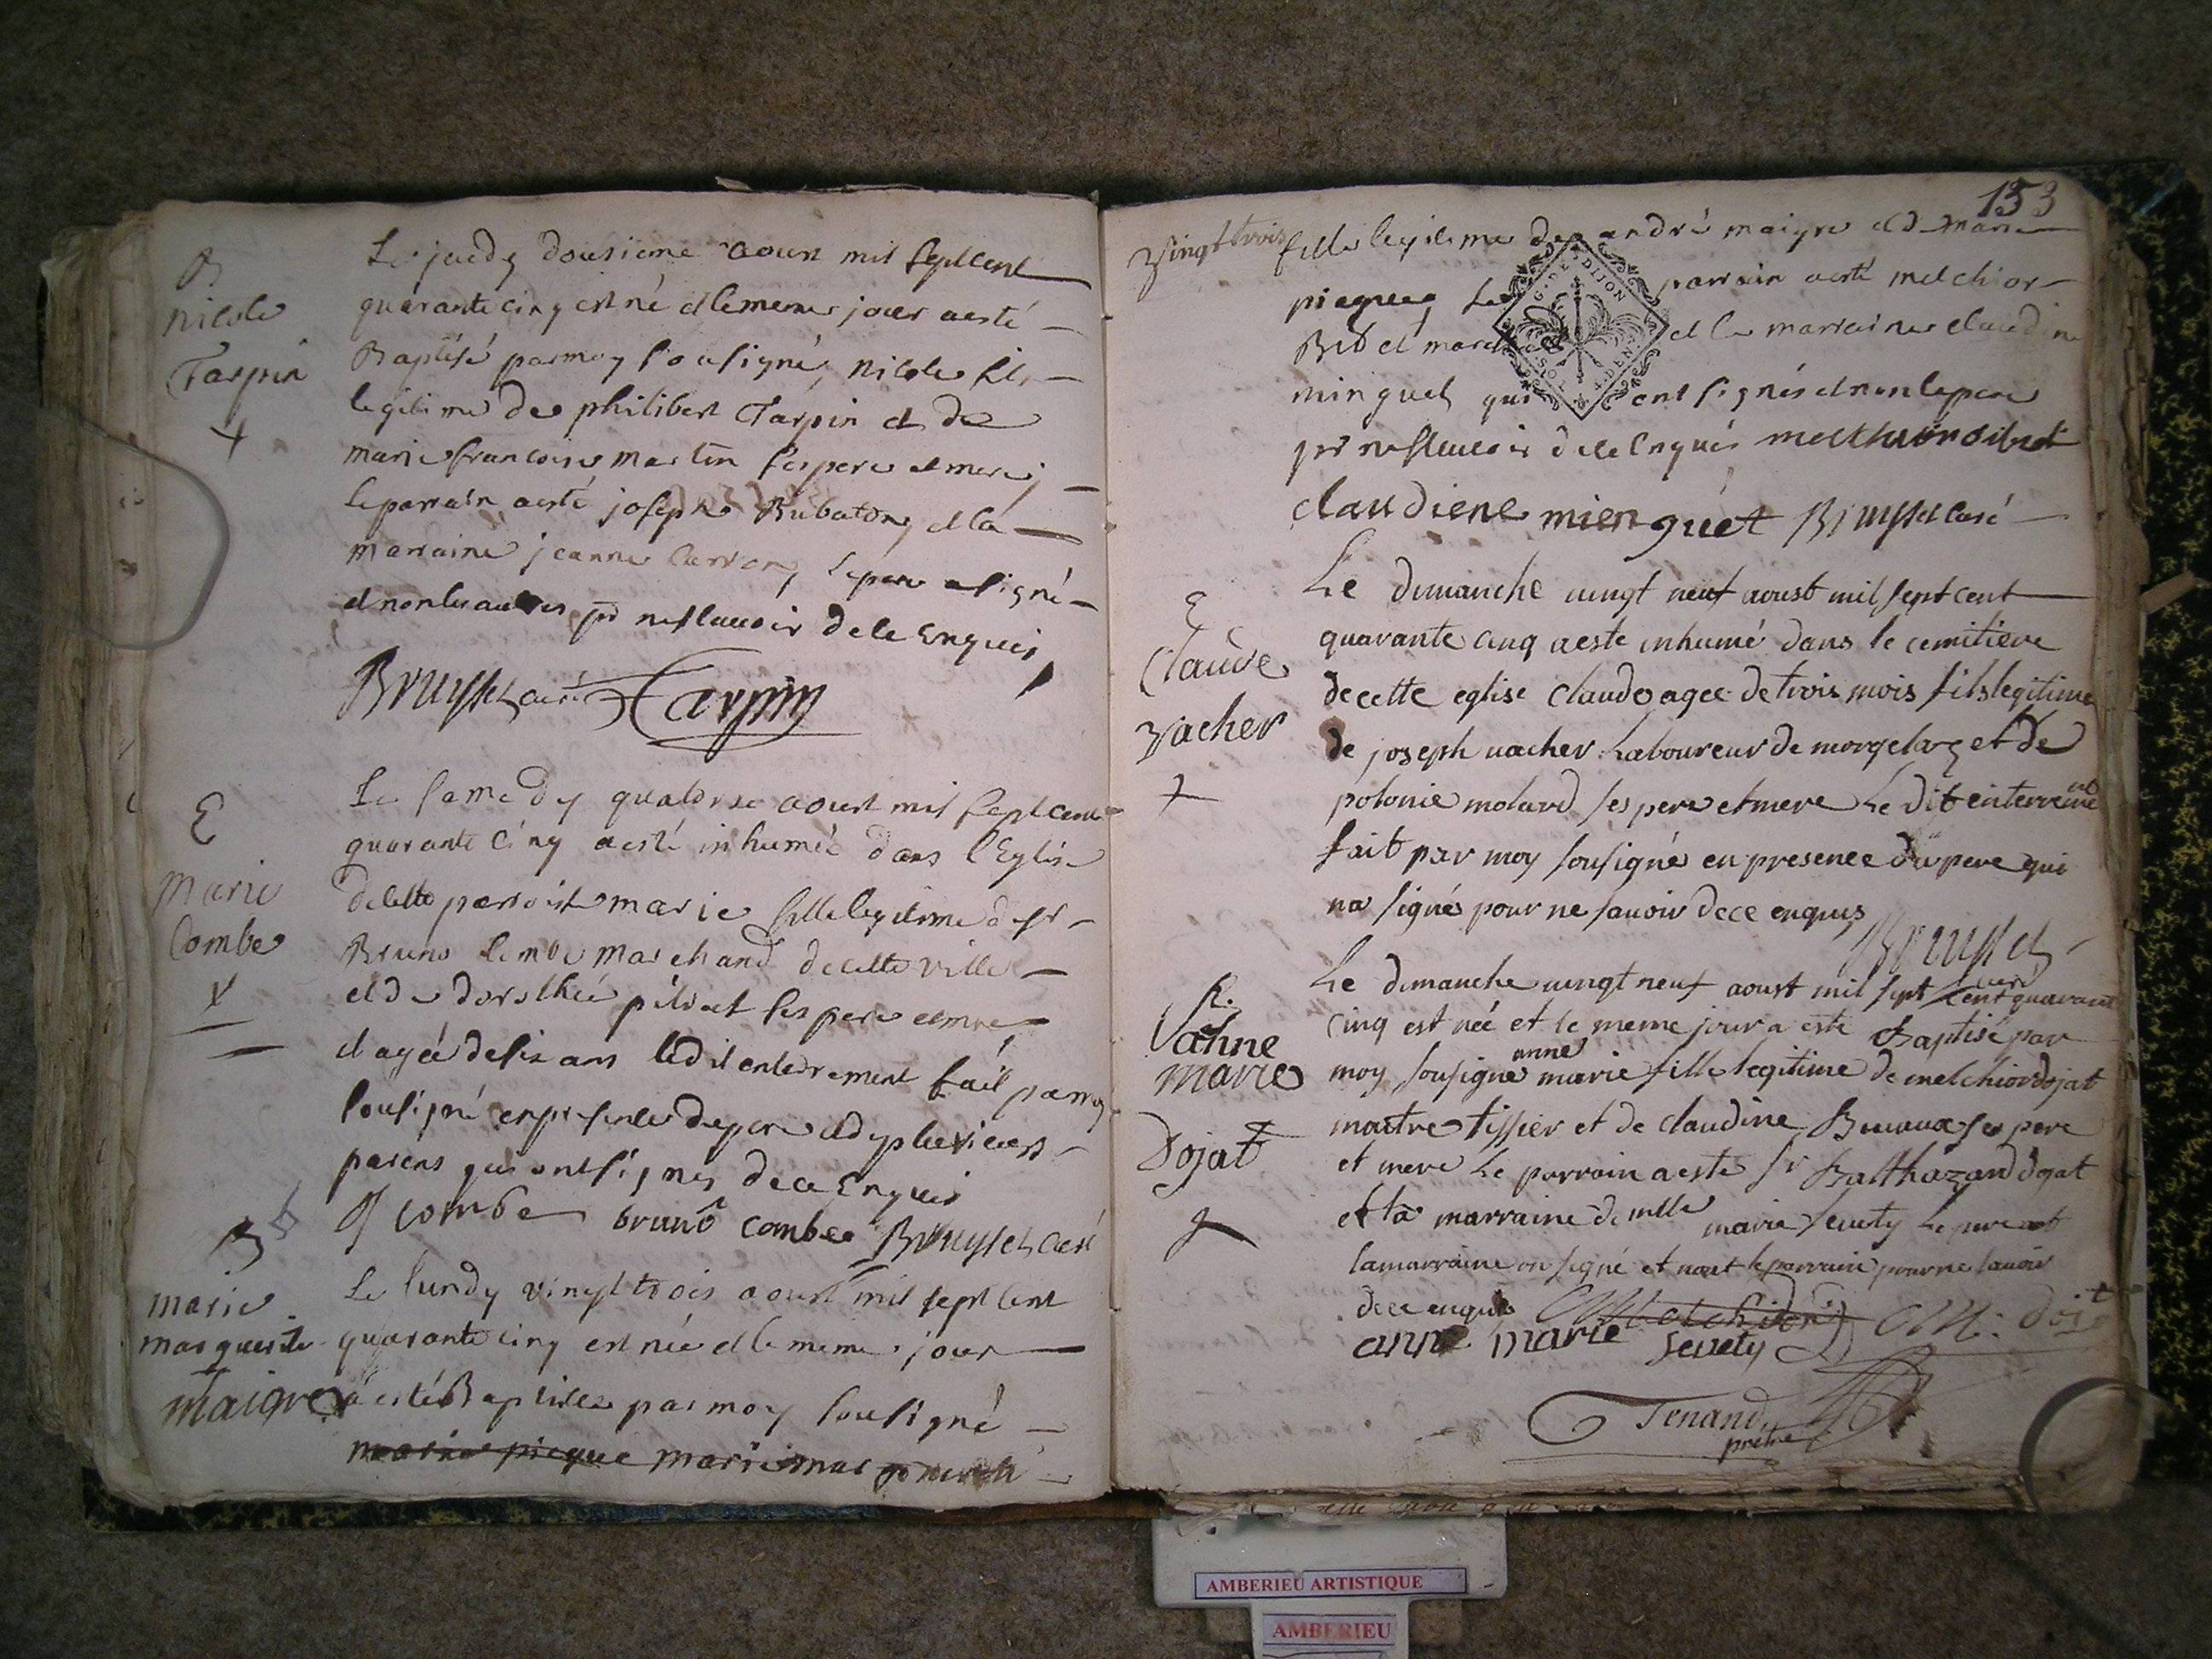 B
nicole
Tarpin
Le jeudy dousieme aoust mil sept cent
quarante cinq est né et le meme jour a esté
Baptisé par moy sousigné, nicole fils
legitime de philibert Tarpin et de
marie francoise martin ses pere et mere
le parrain a esté joseph Rubat et la
marraine jeanne le pere a signé
et non les autres pr ne scavoir de ce Enquis
Bruysset curé Tarpin
E
marie
Combe
Le samedy quatorse aoust mil sept cent
quarante cinq a esté inhumée dans l'Eglise
de cette parroisse marie fille legitime de sr
Bruno Combe marchand de cette ville
et de dorothée ses pere et mere
et agée de six ans ledit enterrement fait par moy
sousigné en presence du pere et de plusieurs
parens qui ont signés de ce Enquis
combe brunô combe Bruysset curé
B
marie
marguerite
maigre
Le lundy vingt trois aoust mil sept cent
quarante cinq est née et le meme jour
a esté Baptisée par moy sousigné
marie
153
vingt trois
fille legitime de andré maigre et de marie
parrain a esté melchior
et la marraine claudine
minguet qui ont signés et non le pere
pr ne scavoir de ce Enquis
claudiene mienguét Bruysset curé
E
Claude
vacher
Le dimanche vingt neuf aoust mil sept cent
quarante cinq a esté inhumé dans le cemitiere
de cette eglise claude agee de trois mois fils legitime
de joseph vacher Laboureur de et de
polonie molard ses pere et mere Le dit enterrement
fait par moy sousigné en presence du pere qui
na signé pour ne savoir de ce enquis
Bruysset
curé
anne
marie
Dojat
Le dimanche vingt neuf aoust mil sept cent quarante
cinq est née et le meme jour a esté Baptisé par
moy sousigné anne marie fille legitime de melchior dojat
maitre tissier et de claudine ses pere
et mere Le parrain a esté sr Balthazard dojat
et la marraine demlle marie sevety Le pere et
la marraine on signé et nont le parrain pour ne savoir
de ce enquis
anne marie sevety
Tenand
prêtre
G. DE DIJON
AMBERIEU ARTISTIQUE
AMBERIEU